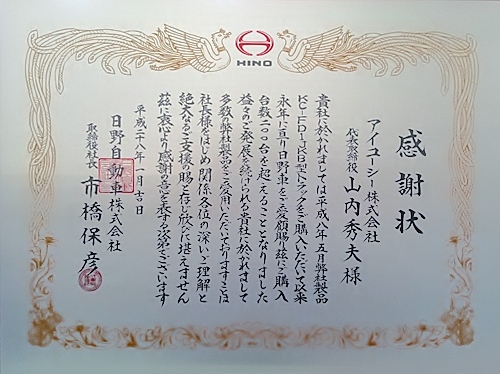 HINO
感謝状
アイユーシー株式会社
代表取締役 山内秀夫様
貴社に於かれましては平成八年五月弊社製品
型トラックをご購入いただいて以来
永年に亘り日野車をご愛顧賜り茲にご購入
台数二〇〇台を超えることとなりました
益々のご発展を続けられる貴社に於かれまして
多数の弊社製品をご愛用いただいておりますことは
社長様をはじめ関係各位の深いご理解と
絶大なるご支援の賜と存じ欣びに堪えません
茲に衷心より感謝の意を表する次第でございます
平成二十八年一月吉日
日野自動車株式会社
取締役社長 市橋保彦